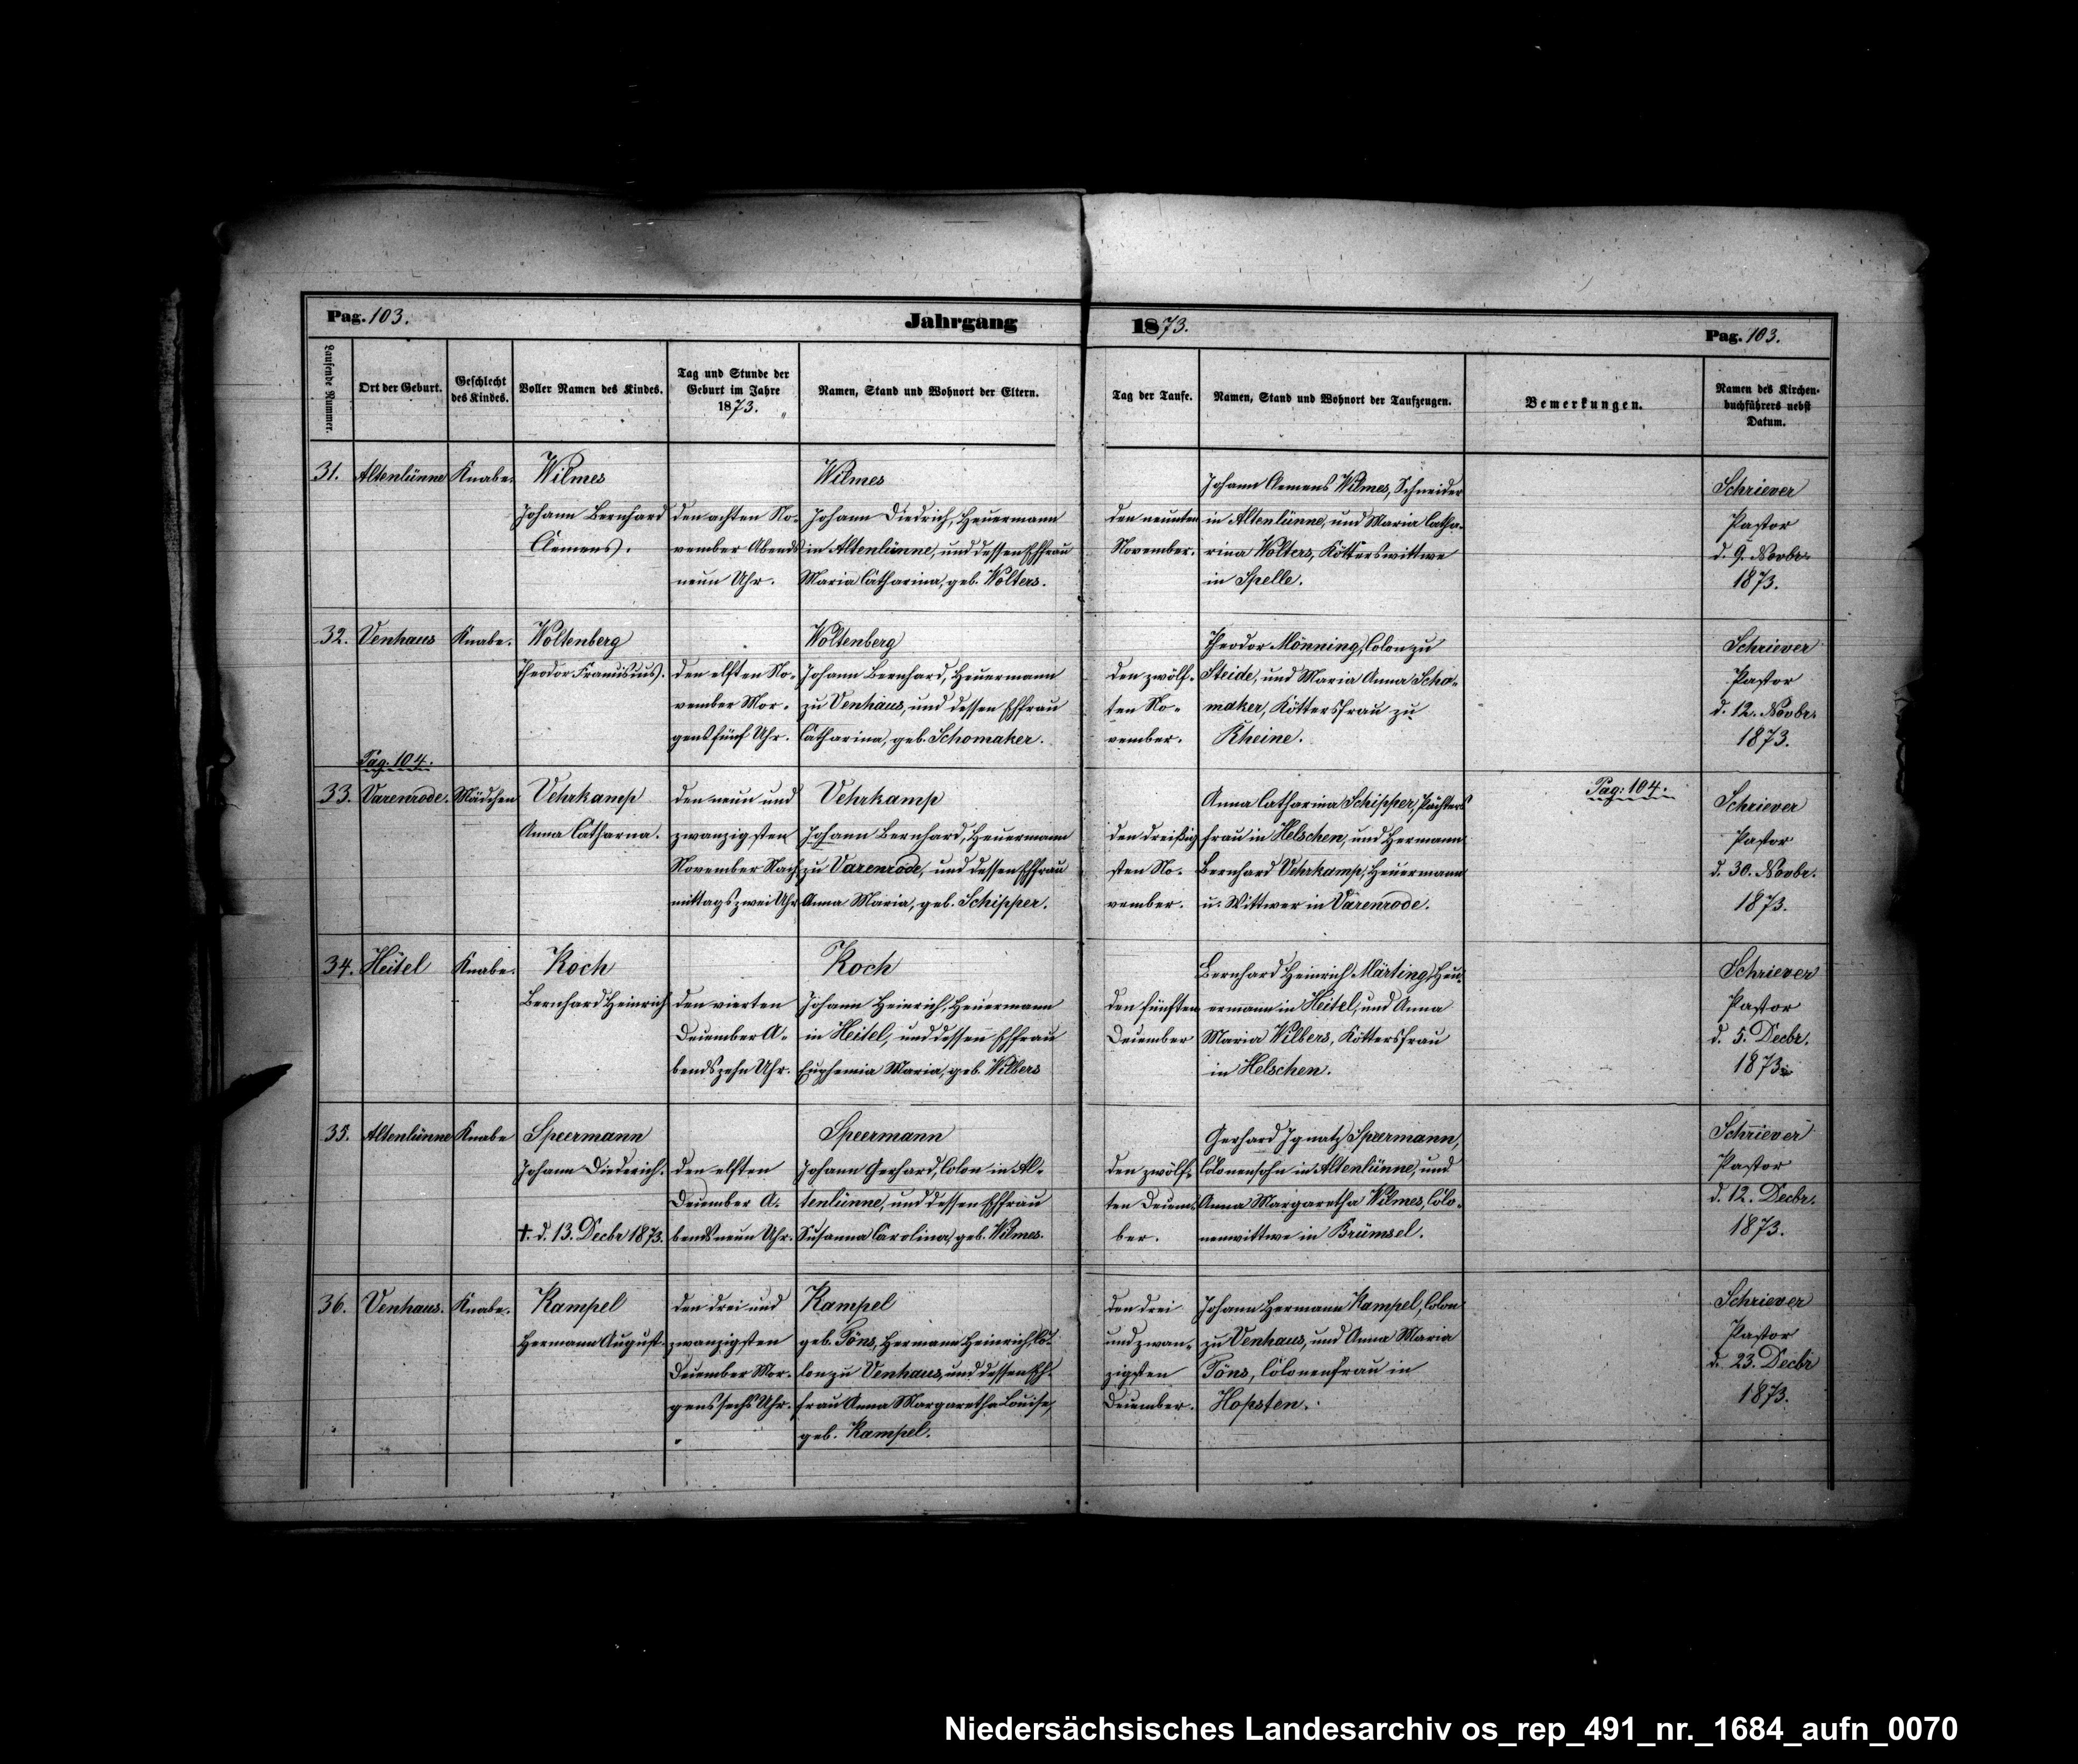 Pag. 103.
Jahrgang
1873.
Pag. 103.
Laufende Nummer.
Ort der Geburt.
Geschlecht
des Kindes.
Voller Namen des Kindes.
Tag und Stunde der
Geburt im Jahre
1873.
Namen, Stand und Wohnort der Eltern.
Tag der Taufe.
Namen, Stand und Wohnort der Taufzeugen.
Bemerkungen.
Namen des Kirchen-
buchführers nebst
Datum.
31.
Altenlünne
Knabe.
Wilmes
Johann Bernhard
Clemens.
den achten No-
vember Abends
neun Uhr.
Wilmes
Johann Diedrich, Heuermann
in Altenlünne, und dessen Ehfrau
Maria Catharina, geb. Wolters.
den neunten
November.
Johann Clemens Wilmes, Schneider
in Altenlünne, und Maria Catha-
rina Wolters, Kötterswittwe
in Spelle.
Schriever
Pastor
d. 9. Novbr.
1873.
32.
Venhaus
Knabe.
Woltenberg
Theodor Franciscus.
den elften No-
vember Mor-
gens fünf Uhr.
Woltenberg
Johann Bernhard, Heuermann
zu Venhaus, und dessen Ehfrau
Catharina, geb. Schomaker.
den zwölf-
ten No-
vember.
Theodor Mönning, Colon zu
Steide, und Maria Anna Scho-
maker, Köttersfrau zu
Rheine.
Schriever
Pastor
d. 12. Novbr.
1873.
Pag. 104.
33.
Varenrode.
Mädchen
Vehrkamp
Anna Catharna.
den neun und
zwanzigsten
November Nach
mittags zwei Uhr
Vehrkamp
Johann Bernhard, Heuermann
zu Varenrode, und dessen Ehfrau
Anna Maria, geb. Schipper.
den dreißig
sten No-
vember.
Anna Catharina Schipper, Pächters
frau in Helschen, und Hermann
Bernhard Vehrkamp, Heuermann
u. Wittwer in Varenrode.
Pag: 104.
Schriever
Pastor
d. 30. Novbr.
1873.
34.
Heitel
Knabe.
Koch
Bernhard Heinrich
den vierten
December A-
bends zehn Uhr.
Koch
Johann Heinrich, Heuermann
in Heitel, und dessen Ehfrau
Euphemia Maria, geb. Wilbers
den fünften
December
Bernhard Heinrich Märting, Heu-
ermann in Heitel, und Anna
Maria Wilbers, Köttersfrau
in Helschen.
Schriever
Pastor
d. 5. Decbr.
1873.
35.
Altenlünne
Knabe
Speermann
Johann Diederich.
†. d. 13. Decbr 1873.
den elften
December A-
bends neun Uhr.
Speermann
Johann Gerhard, Colon in Al-
tenlünne, und dessen Ehfrau
Susanna Carolina, geb. Wilmes.
den zwölf-
ten Decem-
ber.
Gerhard Ignatz Speermann,
Colonensohn in Altenlünne, und
Anna Margaretha Wilmes, Colo-
nenwittwe in Brümsel.
Schriever
Pastor
d. 12. Decbr.
1873.
36.
Venhaus.
Knabe.
Kampel
Hermann August.
den drei und
zwanzigsten
December Mor-
gens sechs Uhr.
Kampel
geb. Töns, Hermann Heinrich, Co-
lon zu Venhaus, und dessen Eh-
frau Anna Margaretha Louise,
geb. Kampel.
den drei
und zwan-
zigsten
December.
Johann Hermann Kampel, Colon
zu Venhaus, und Anna Maria
Töns, Colonenfrau in
Hopsten.
Schriever
Pastor
d. 23. Decbr
1873.
Niedersächsisches Landesarchiv os_rep_491_nr._1684_aufn_0070